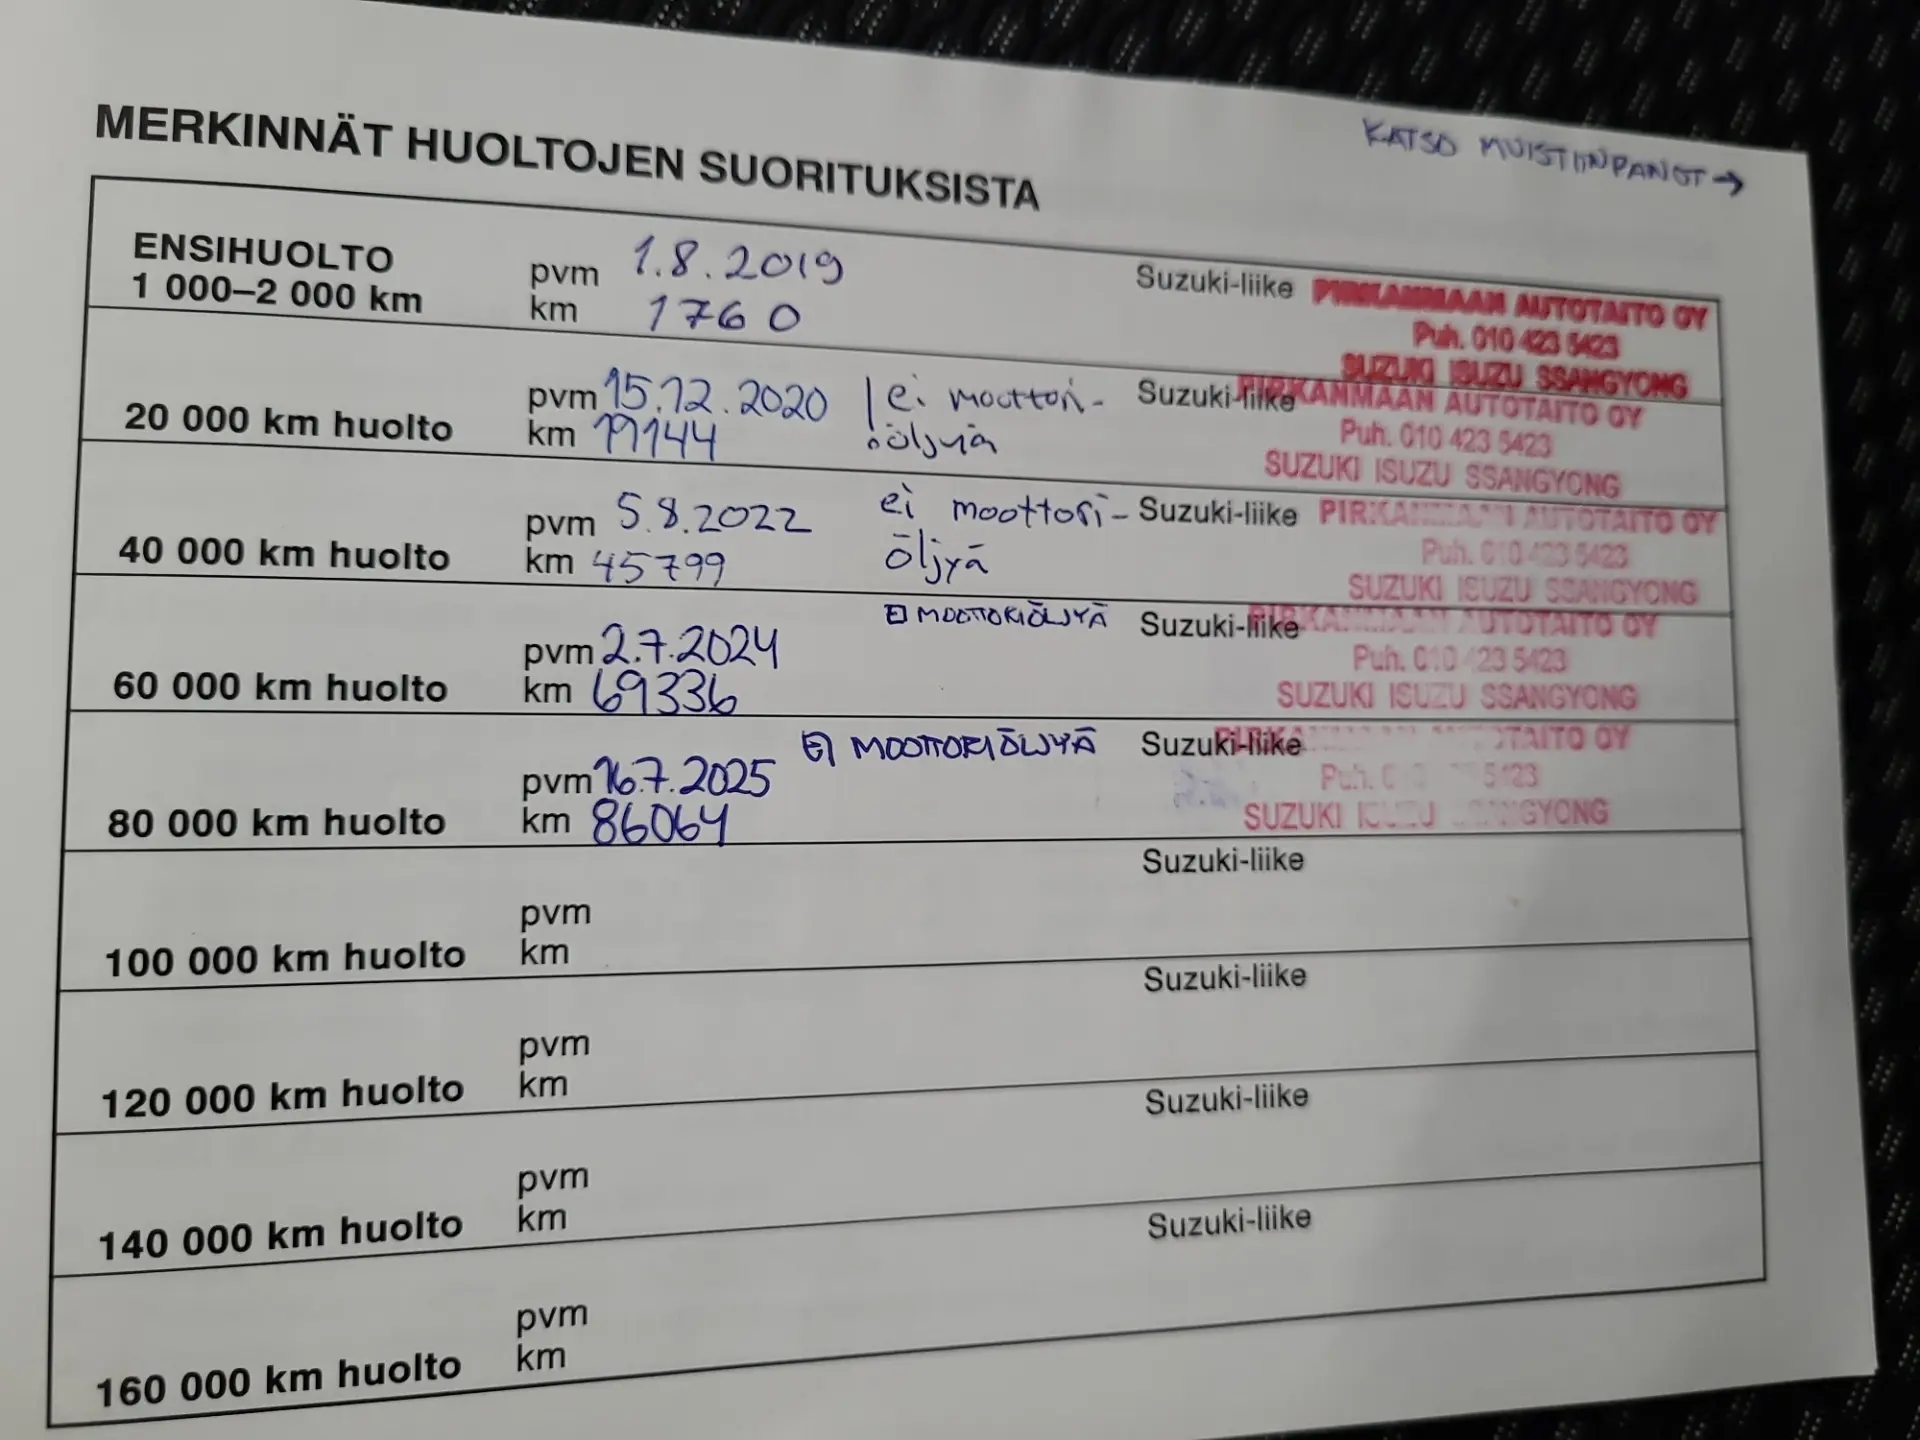 KATSO MUISTIINPANOT →
MERKINNÄT HUOLTOJEN SUORITUKSISTA
ENSIHUOLTO
1 000–2 000 km
pvm 1.8.2019
km 1760
Suzuki-liike PIRKANMAAN AUTOTAITO OY
Puh. 010 423 5423
SUZUKI ISUZU SSANGYONG
20 000 km huolto
pvm 15.12.2020
km 19144
! ei moottori-
öljyä
Suzuki-liike PIRKANMAAN AUTOTAITO OY
Puh. 010 423 5423
SUZUKI ISUZU SSANGYONG
40 000 km huolto
pvm 5.8.2022
km 45799
ei moottori-
öljyä
Suzuki-liike PIRKANMAAN AUTOTAITO OY
Puh. 010 423 5423
SUZUKI ISUZU SSANGYONG
60 000 km huolto
pvm 2.7.2024
km 69336
EI MOOTTORIÖLJYÄ
Suzuki-liike PIRKANMAAN AUTOTAITO OY
Puh. 010 423 5423
SUZUKI ISUZU SSANGYONG
80 000 km huolto
pvm 16.7.2025
km 86064
EI MOOTTORIÖLJYÄ
Suzuki-liike AUTOTAITO OY
Puh. 5423
SUZUKI ISUZU SSANGYONG
100 000 km huolto
pvm
km
Suzuki-liike
120 000 km huolto
pvm
km
Suzuki-liike
140 000 km huolto
pvm
km
Suzuki-liike
160 000 km huolto
pvm
km
Suzuki-liike